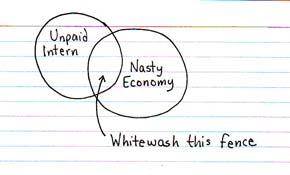 Unpaid
Intern
Nasty
Economy
Whitewash this fence